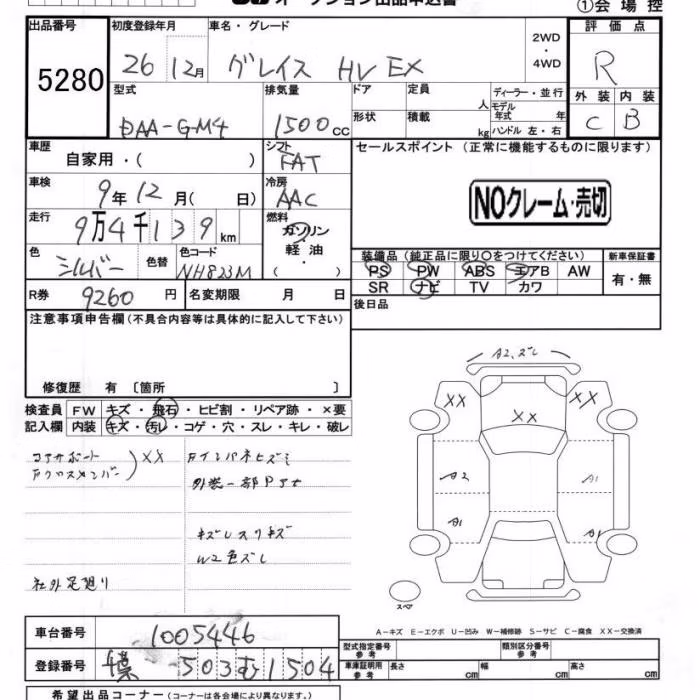 オークション出品申込書 ①会場控
出品番号 初度登録年月 車名・グレード 2WD・4WD 評価点
5280 26 12月 グレイス HV EX R
型式 排気量 ドア 定員 人 ディーラー・並行 外装 内装
DAA-GM4 1500cc 形状 積載 kg モデル年式 年 ハンドル 左・右 C B
車歴 自家用・( ) シフト FAT セールスポイント (正常に機能するものに限ります)
車検 9年12月( 日) 冷房 AAC NOクレーム・売切
走行 9万4千139km 燃料 ガソリン・軽油・( )
色 シルバー 色替 色コード NH823M 装備品(純正品に限り○をつけてください) 新車保証書
PS PW ABS エアB AW 有・無
SR ナビ TV カワ
R券 9260円 名変期限 月 日 後日品
注意事項申告欄(不具合内容等は具体的に記入して下さい)
修復歴 有 〔箇所 〕
検査員 FW キズ・飛石・ヒビ割・リペア跡・×要
記入欄 内装 キズ・汚レ・コゲ・穴・スレ・キレ・破レ
コアサポート
Fクロスメンバー XX
Fインパネヒズミ
外装一部Pサビ
キズレスリキズ
W2色ズレ
社外足廻り
A2、ズレ
XX XX
XX
A2 A1
A1 A1
スペア
A-キズ E-エクボ U-凹み W-補修跡 S-サビ C-腐食 XX-交換済
車台番号 1005446
登録番号 千葉 503 む 1504
型式指定番号 参考 類別区分番号 参考
車庫証明用 参考 長さ cm 幅 cm 高さ cm
希望出品コーナー(コーナーは各会場により異なります。)